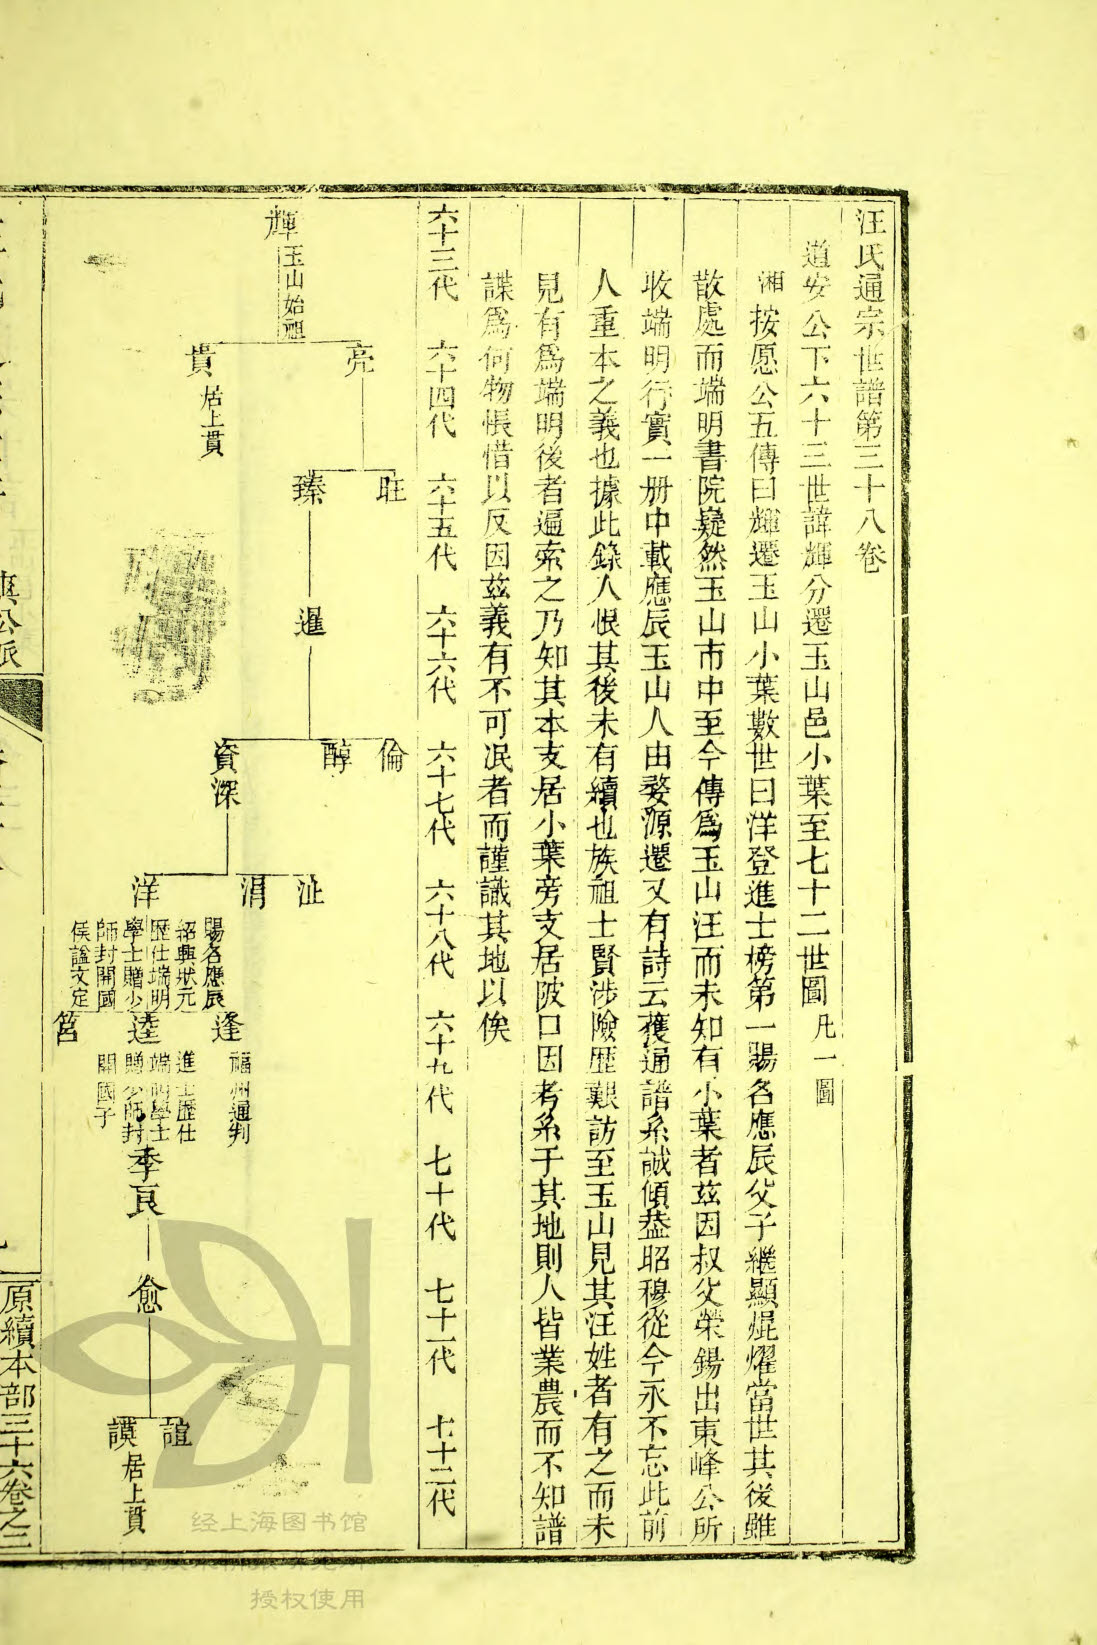 汪氏通宗世譜第三十八卷
道安公下六十三世諱輝分遷玉山邑小葉至七十二世圖 凡一圖
湘 按愿公五傳曰輝遷玉山小葉數世曰洋登進士榜第一賜名應辰父子繼顯焜燿當世其後雖
散處而端明書院嶷然玉山市中至今傳為玉山汪而未知有小葉者茲因叔父榮錫出東峰公所
收端明行實一册中載應辰玉山人由婺源遷又有詩云獲通譜系誠傾葢昭穆從今永不忘此前
人重本之義也據此錄人恨其後未有續也族祖士賢涉險歷艱訪至玉山見其汪姓者有之而未
見有為端明後者遍索之乃知其本支居小葉旁支居陂口因考系于其地則人皆業農而不知譜
諜為何物悵惜以反因茲義有不可泯者而謹識其地以俟
六十三代 六十四代 六十五代 六十六代 六十七代 六十八代 六十九代 七十代 七十一代 七十二代
輝 玉山始祖
亮
貴 居上貫
旺
臻
暹
倫
醇
資深
沚
涓
洋
賜名應辰
紹興狀元
歷仕端明
學士贈少
師封開國
侯諡文定
逢 福州通判
逵
進士歷仕
端明學士
贈少師封
開國子
筥
季良
愈
誼
謨 居上貫
公派
原續本部三十六卷之三
经上海图书馆
授权使用